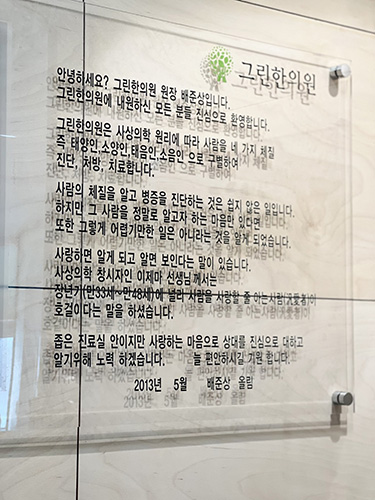 그린한의원
안녕하세요? 그린한의원 원장 배준상입니다.
그린한의원에 내원하신 모든 분들 진심으로 환영합니다.
그린한의원은 사상의학 원리에 따라 사람을 네 가지 체질
즉 태양인.소양인.태음인.소음인 으로 구별하여
진단, 처방, 치료합니다.
사람의 체질을 알고 병증을 진단하는 것은 쉽지 않은 일입니다.
하지만 그 사람을 정말로 알고자 하는 마음만 있다면
또한 그렇게 어렵기만한 일은 아니라는 것을 알게 되었습니다.
사랑하면 알게 되고 알면 보인다는 말이 있습니다.
사상의학 창시자인 이제마 선생님께서는
장년기(만33세~만48세)에 널리 사람을 사랑할 줄 아는사람(汎愛者)이
호걸이다는 말을 하셨습니다.
좁은 진료실 안이지만 사랑하는 마음으로 상대를 진심으로 대하고
알기위해 노력 하겠습니다. 늘 편안하시길 기원 합니다.
2013년 5월 배준상 올림